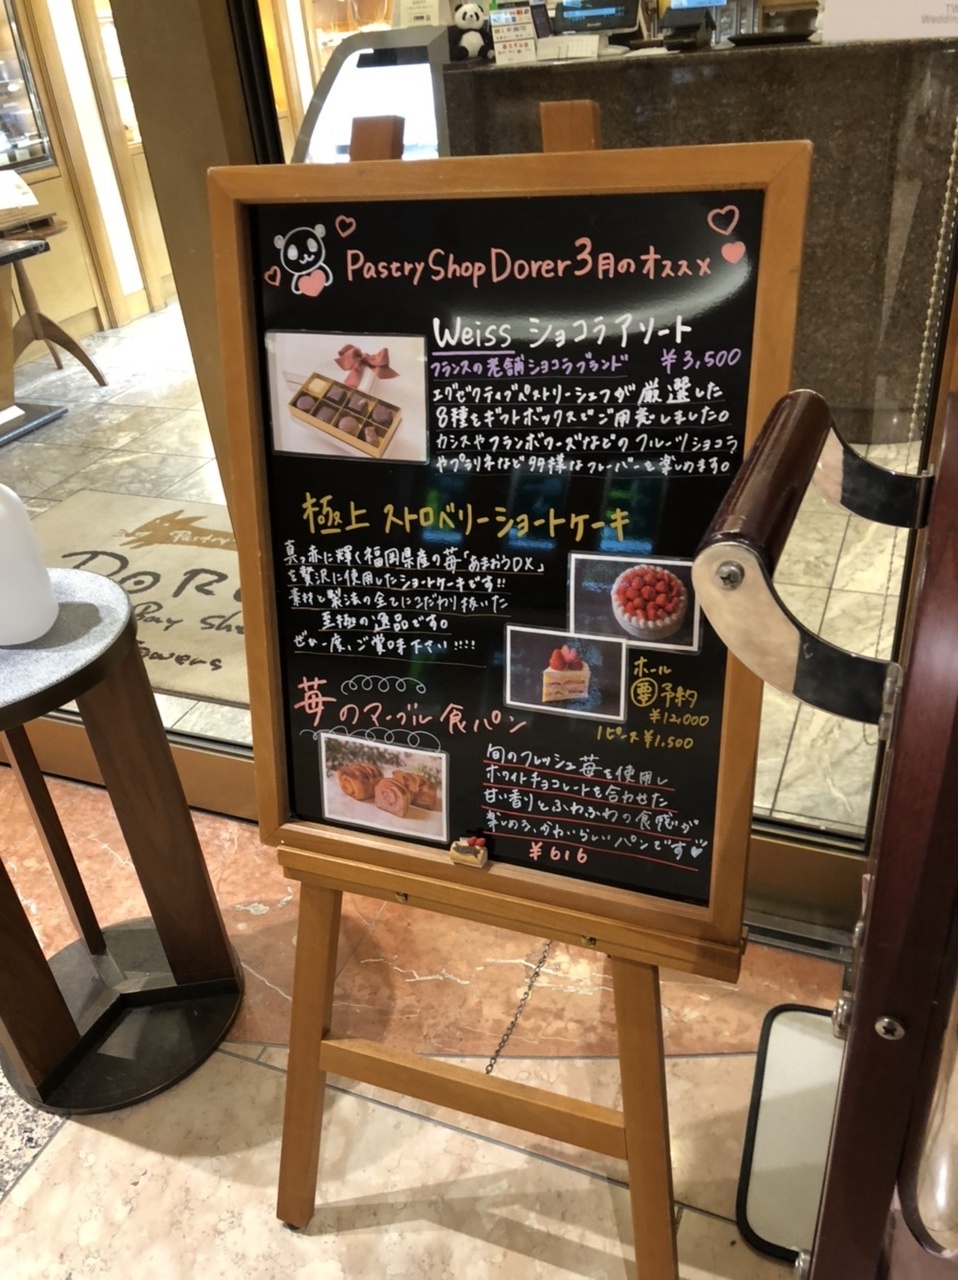 Pastry Shop Dorer 3月のオススメ
Weiss ショコラアソート
フランスの老舗ショコラブランド ¥3,500
エグゼクティブペストリーシェフが厳選した
8種をギフトボックスでご用意しました。
カシスやフランボワーズなどのフルーツショコラ
やプラリネなど多様なフレーバーを楽しめます。
極上 ストロベリーショートケーキ
真っ赤に輝く福岡県産の苺「あまおうDX」
を贅沢に使用したショートケーキです!!
素材と製法の全てにこだわり抜いた
至極の逸品です。
ぜひ一度、ご賞味下さい!!!!
ホール
要予約
¥12,000
1ピース¥1,500
苺のマーブル食パン
旬のフレッシュ苺を使用し
ホワイトチョコレートを合わせた
甘い香りとふわふわの食感が
楽しめる、かわいらしいパンです
¥616
DOR
Bay She
Flowers